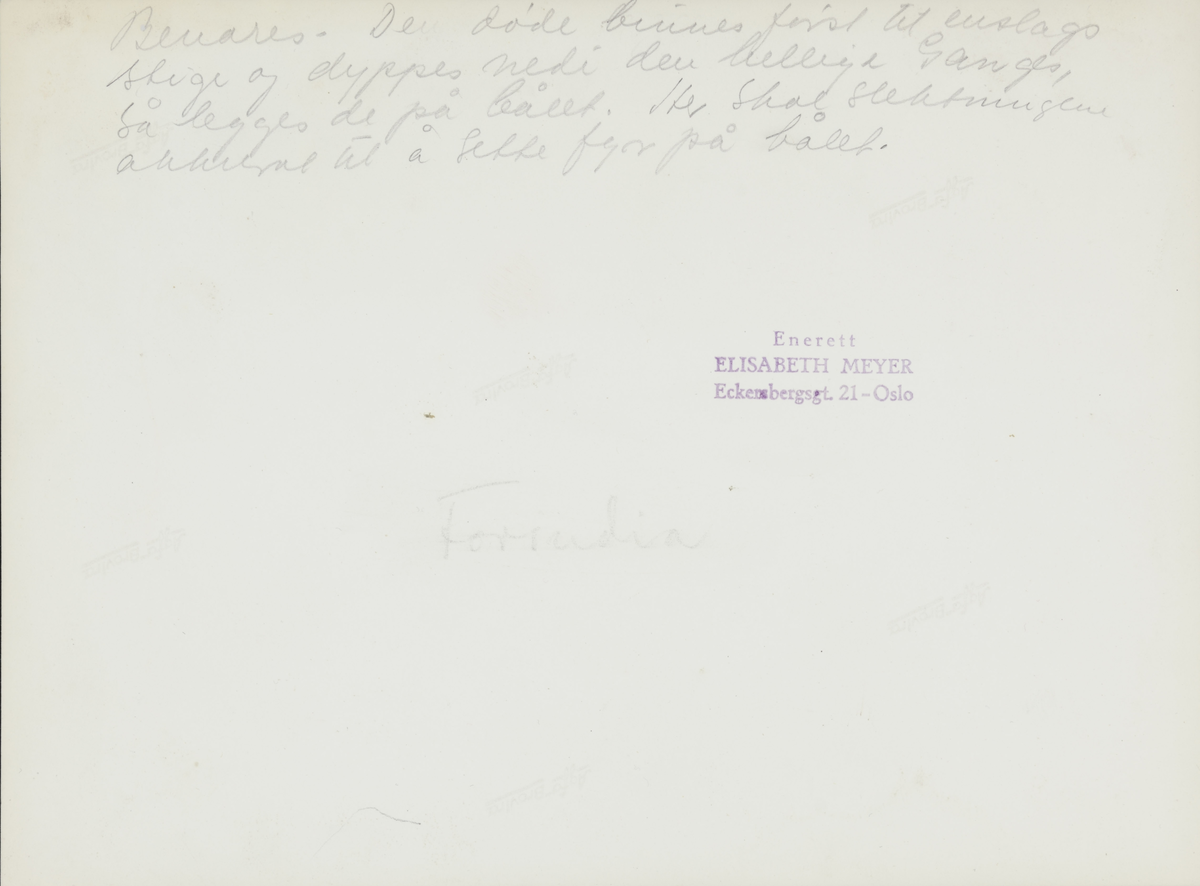 Benares. Den døde binnes først til enslags
stige og dyppes nedi den hellige Ganges,
så legges de på bålet. Her skal slektningene
akkurat til å sette fyr på bålet.
Enerett
ELISABETH MEYER
Eckersbergsgt. 21-Oslo
Forindia